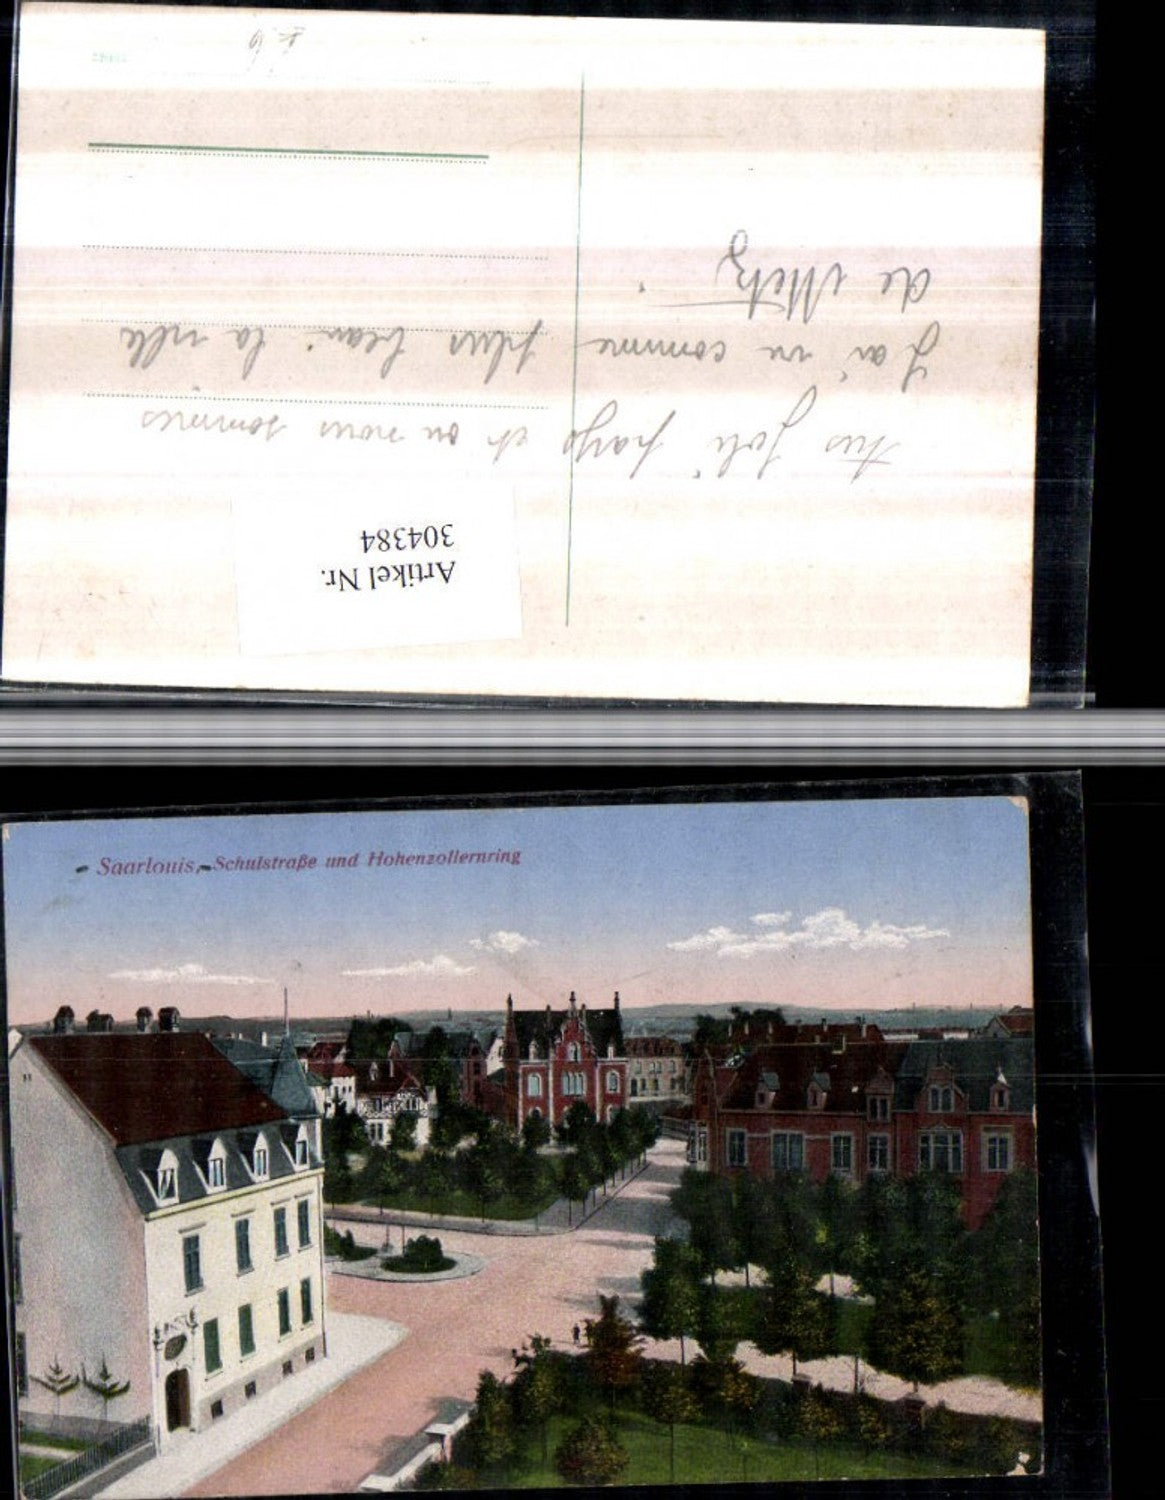 Artikel Nr.
304384
très joli pays et ou nous sommes
J'ai vu comme plus beau la ville
de Metz.
Saarlouis, Schulstraße und Hohenzollernring